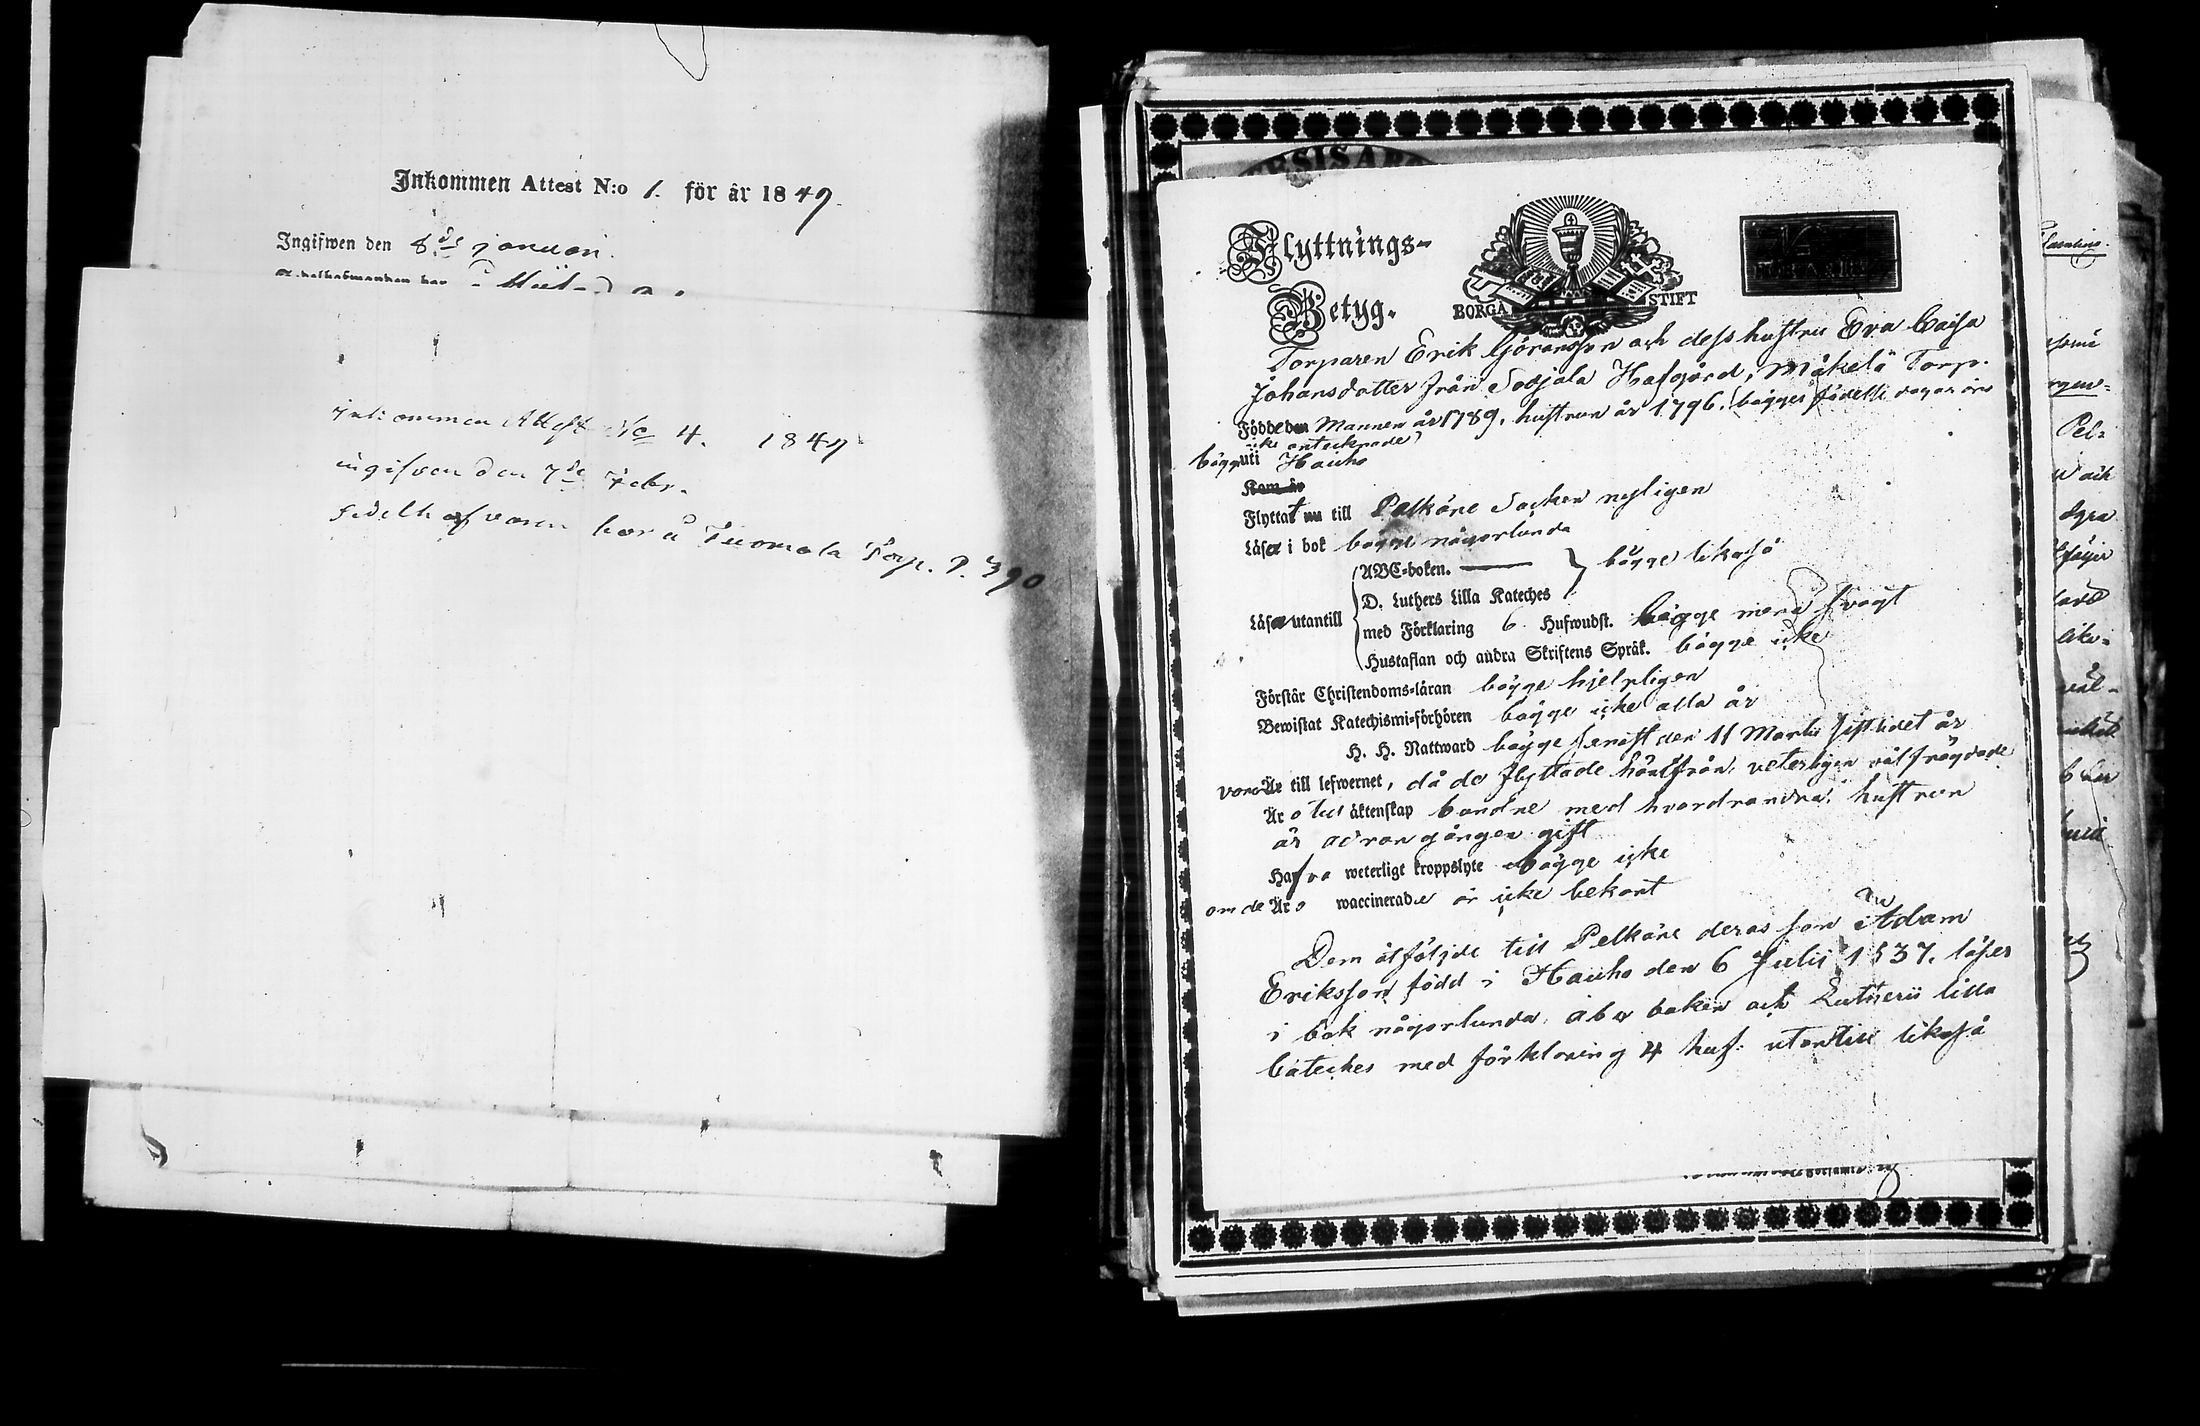 Inkommen Attest N:o 1. för år 1849.
Ingifwen den 8de januari.
Inkommen Attest No 4. 1849
ingifven den 7de Febr.
hor å Tuomala Torp. P. 390
Flyttnings-
Betyg.
BORGÅ STIFT
Torparen Erik Göransson och dess hustru Eva Caisa
Johansdotter från Sotjala Hafgård, Mäkelä Torp.
Född den Mannen år 1789, hustrun år 1796, bägges födelse dagar äro
icke antecknade
bägge uti Hauho
Kom år
Flyttat nu till Pelkäne Socken nyligen
Läsa i bok bägge någorlunda
ABC-boken. bägge likaså
D. Luthers Lilla Kateches
Läsa utantill
med Förklaring 6 Hufwudst. bägge mera svagt
Hustaflan och andra Skriftens Språk. bägge icke
Förstår Christendoms-läran bägge hjelpligen
Bewistat Katechismi-förhören bägge icke alla år
H. H. Nattward bägge senast den 11 Martii sistledet år
voro Är till lefwernet, då de flyttade härifrån, veterligen välfrägdade
Äro till äktenskap bundne med hvardrandra, hustrun
är adran gången gift
Hafva weterligt kroppslyte bägge icke
om de Äro waccinerade är icke bekant
Dem åtföljde till Pelkäne deras son Adam
Eriksson född i Hauho den 6 Julii 1837. läser
i bok någorlunda, abc boken och Lutherii lilla
cateches med förklaring 4 huf: utantill likaså